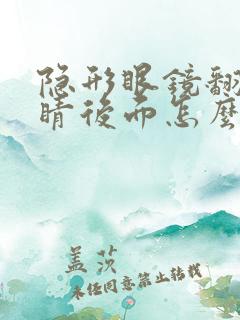 隐形眼镜翻
睛后面怎麽
盖茨
未经同意禁止转载